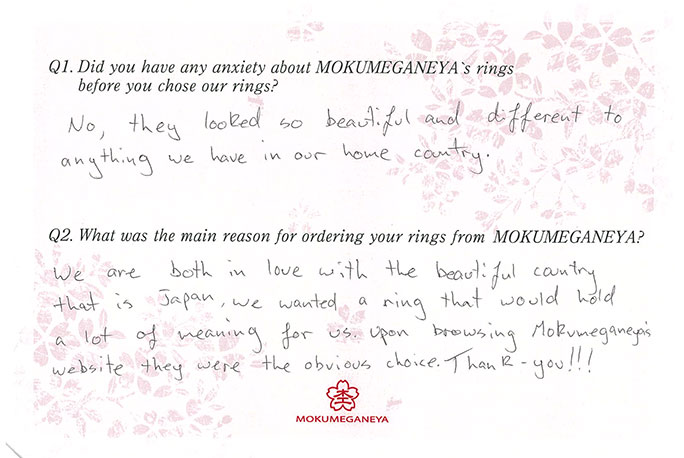 Q1. Did you have any anxiety about MOKUMEGANEYA`s rings
before you chose our rings?
No, they looked so beautiful and different to
anything we have in our home country.
Q2. What was the main reason for ordering your rings from MOKUMEGANEYA?
We are both in love with the beautiful country
that is Japan, we wanted a ring that would hold
a lot of meaning for us. upon browsing Mokumeganeya's
website they were the obvious choice. Thank-you!!!
MOKUMEGANEYA